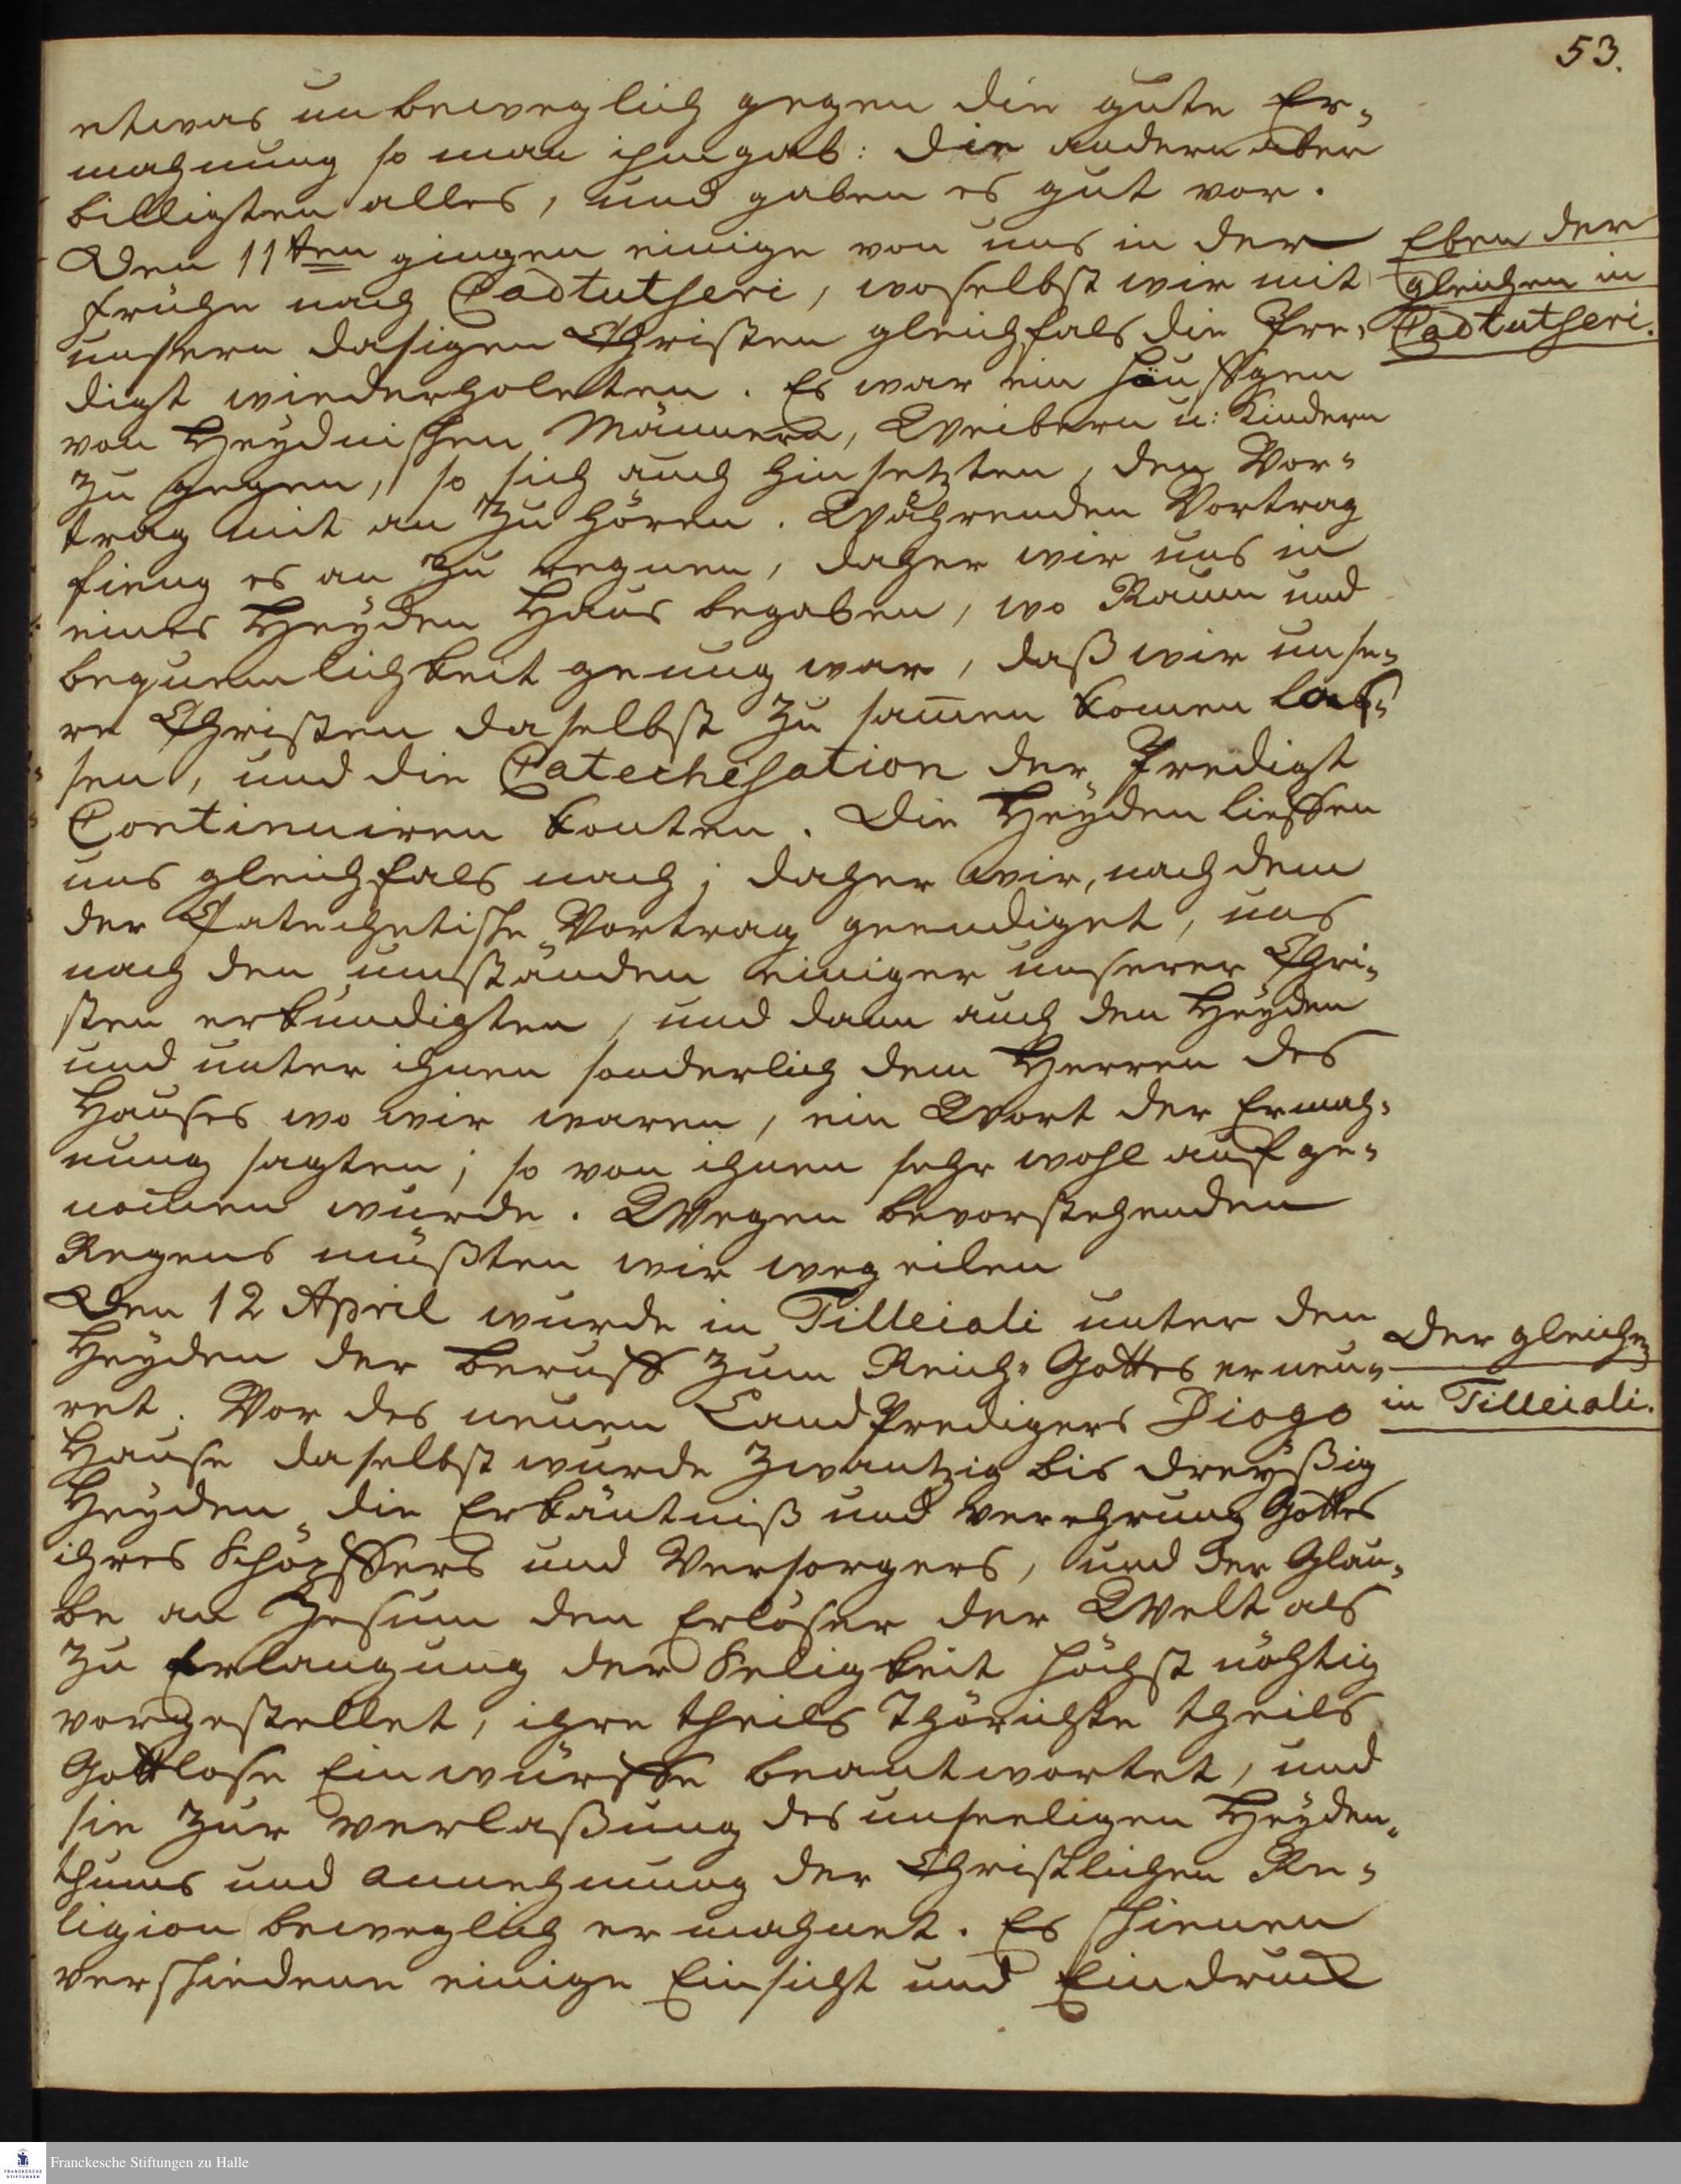 53.
etwas unbeweglich gegen die gute Er-
mahnung so man ihm gab: die andern aber
billigten alles, und gaben es gut vor.
Den 11ten gingen einige von uns in der
frühe nach Cadtutseri, woselbst wir mit
unsern dasigen Christen gleichfals die Pre-
digt wiederholeten. Es war ein häuffgen
von Heydnischen Männern, Weibern u: Kindern
zu gegen, so sich auch hinsetzten, den Vor-
trag mit an zu hören. Währenden Vortrag
fieng es an zu regnen, daher wir uns in
eines Heyden Haus begaben, wo Raum und
bequemlichkeit genung war, daß wir unse-
re Christen daselbst zu sam̄en kom̄en las-
sen, und die Catechesation der Predigt
Continuiren konten. Die Heyden liessen
uns gleichfals nach; daher wir, nach dem
der Catechetische Vortrag geendiget, uns
nach den umständen einiger unserer Chri-
sten erkundigten, und dann auch den Heyden
und unter ihnen sonderlich dem Herren des
Hauses wo wir waren, ein Wort der Ermah-
nung sagten; so von ihnen sehr wohl aufge-
nom̄en wurde. Wegen bevorstehenden
Regens müßten wir weg eilen
Den 12 April wurde in Tilleiali unter den
Heyden der beruff zum Reich Gottes erneu-
ret. Vor des neuen Land Predigers Diogo
Hause daselbst wurde zwantzig bis dreyßig
Heyden die Erkäntniß und verehrung Gottes
ihres Schöpffers und Versorgers, und der Glau-
be an Jesum den Erlöser der Welt als
zu Erlangung der Seligkeit höchst nöhtig
vorgestellet, ihre theils Thörichte theils
Gottlose Einwürffe beantwortet, und
sie zur verlaßung des unseeligen Heyden-
thums und annehmung der Christlichen Re-
ligion beweglich ermahnet. Es schienen
verschiedene einige Einsicht und Eindruck
Eben der
gleichen in
Cadtutseri.
Der gleichen
in Tilleiali.
FRANCKESCHE STIFTUNGEN
Franckesche Stiftungen zu Halle